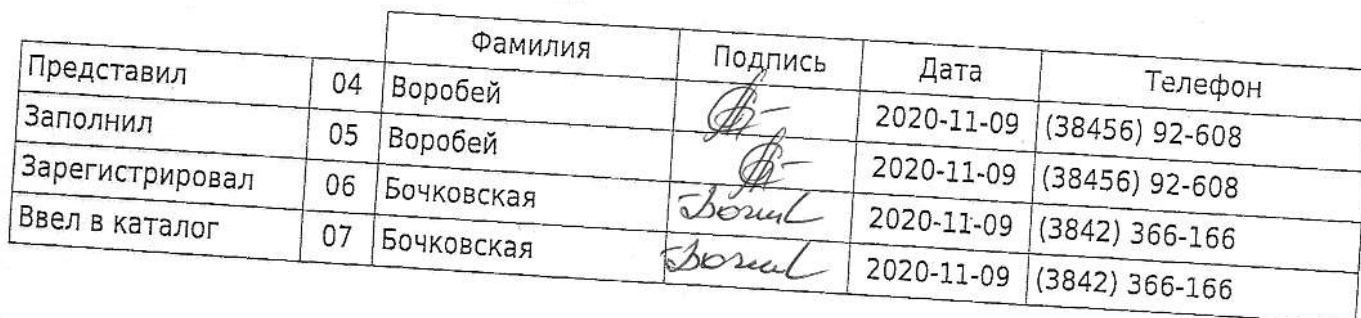 Фамилия Подпись Дата Телефон
Представил 04 Воробей 2020-11-09 (38456) 92-608
Заполнил 05 Воробей 2020-11-09 (38456) 92-608
Зарегистрировал 06 Бочковская 2020-11-09 (3842) 366-166
Ввел в каталог 07 Бочковская 2020-11-09 (3842) 366-166